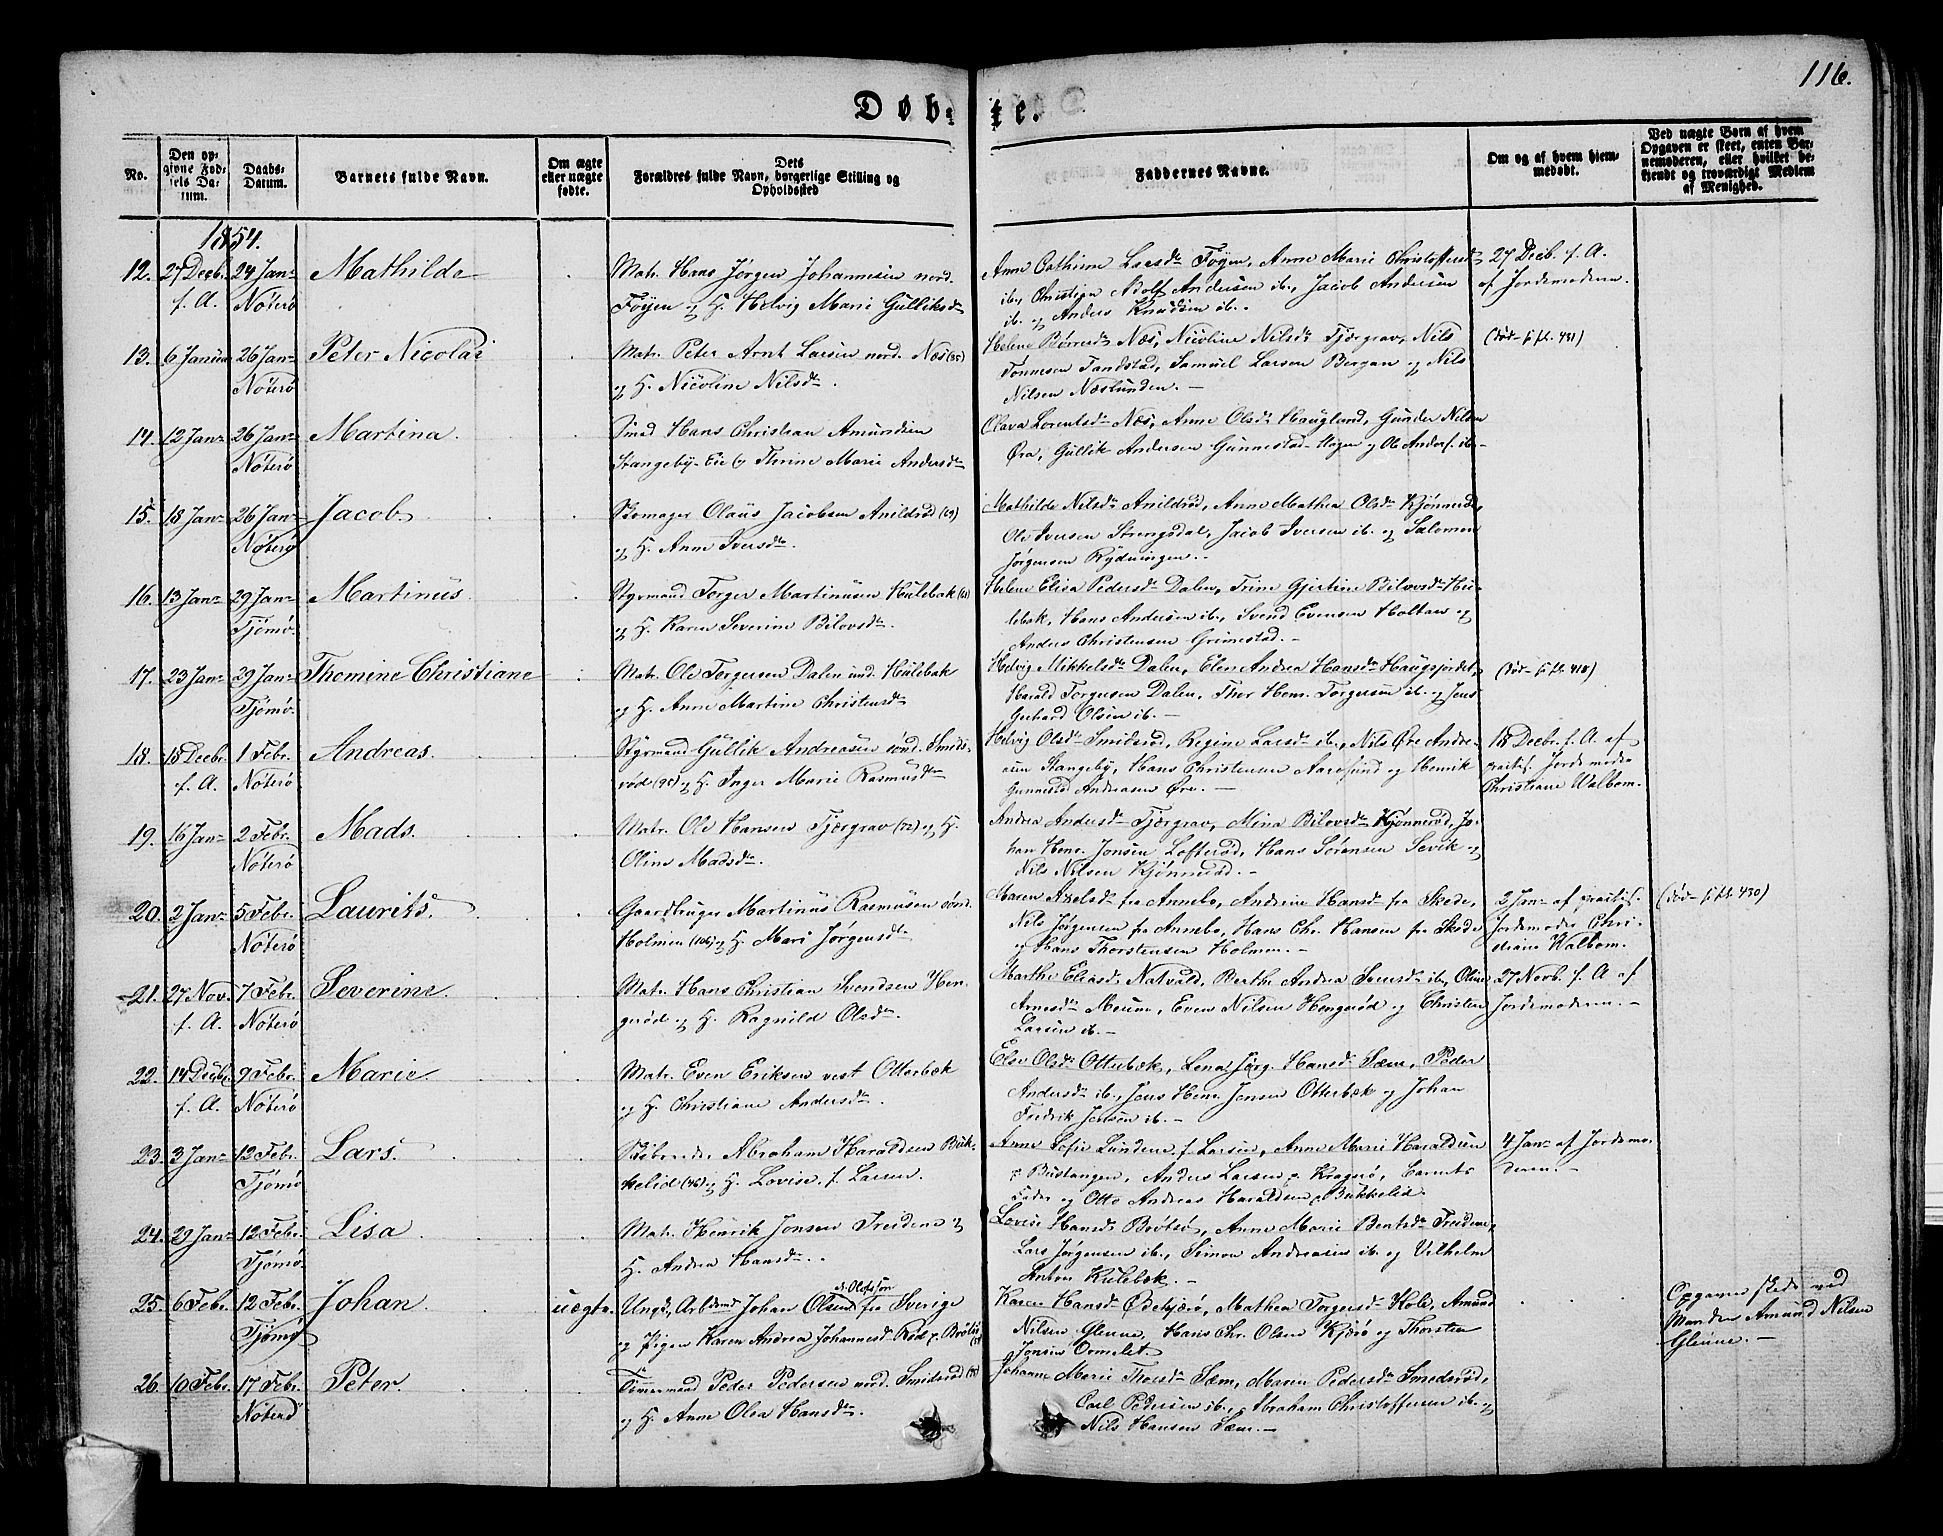 116.
Døbte.
No.
Den opgivne Fødsels Datum.
Daabs-Datum.
Barnets fulde Navn.
Om ægte eller uægte fødte.
Dets Forældres fulde Navn, borgerlige Stilling og Opholdssted
Faddernes Navne.
Om og af hvem hjemmedøbt.
Ved uægte Børn af hvem Opgaven er skeet, enten Barnemoderen, eller hvilket bekjendt og troværdigt Medlem af Menighed.
1854.
12. 27 Decb. f. A. 24 Jan. Nøterø Mathilde
Matr. Hans Jørgen Johannesen nord.
Føyen og H. Helvig Marie Gulliksd.
Anne Cathrine Larsd. Føyen, Anne Marie Christoffersd.
ib., Christian Adolf Andersen ib., Jacob Andersen
ib. og Anders Knudsen ib.
27 Decb. f. A.
af Jordemoderen.
13. 6 Januar 26 Jan. Nøterø Peter Nicolai
Matr. Peter Arnt Larsen nord. Næs (85)
og H. Nicoline Nilsd.
Helene Børresd. Næs, Nicoline Nilsd. Tjærgrav, Nils
Tønnesen Tandstad, Samuel Larsen Bergan og Nils
Nilsen Næslunden.
(død fl. 431)
14. 12 Jan. 26 Jan. Nøterø Martina.
Smed Hans Christian Amundsen
Stangeby-Eie og Thrine Marie Andersd.
Olava Lorentsd. Næs, Anne Olsd. Haugland, Gunder Nilsen
Øra, Gullik Andersen Gunnestad-Hagen og Ole Anders. ib.
15. 18 Jan. 26 Jan. Nøterø Jacob.
Skomager Olaus Jacobsen Anildrød (69)
og H. Anne Iversd.
Mathilde Nilsd. Anildrød, Anne Mathea Olsd. Kjønnerød,
Ole Iversen Strengsdal, Jacob Iversen ib. og Salomon
Jørgensen Rydningen.
16. 13 Jan. 29 Jan. Tjømø Martinus.
Styrmand Torger Martinusen Hulebak (61)
og H. Karen Severine Bilovsd.
Helene Elisa Pedersd. Dalen, Trine Gjertine Bilovsd. Hu-
lebak, Hans Andersen ib., Svend Evensen Holtan og
Anders Christensen Grimestad.
17. 23 Jan. 29 Jan. Tjømø Thomine Christiane
Matr. Ole Torgersen Dalen ind. Hulebak
og H. Anne Martine Christensd.
Helvig Mikkelsd. Dalen, Elen Andrea Hansd. Haugsjordet,
Harald Torgersen Dalen, Thor Henr. Torgersen ib. og Jens
Gerhard Olsen ib.
(død fl. 418)
18. 18 Decbr. f. A. 1 Febr. Nøterø Andreas.
Styrmand Gullik Andreasen sønd. Smids-
rød (98) og H. Inger Marie Rasmusd.
Helvig Olsd. Smidsrød, Regine Larsd. ib., Nils Øre Andre-
sen Stangeby, Hans Christensen Aarøsund og Henrik
Gunnestad Andreasen Øre.
18 Decbr. f. A. af
practis. Jordemoder
Christiane Walbom.
19. 16 Jan. 2 Febr. Nøterø Mads.
Matr. Ole Hansen Tjærgrav (72) og H.
Oline Madsd.
Andrea Andersd. Tjærgrav, Mina Bilovsd. Kjønnerød, Jo-
han Henr. Jonsen Lofterød, Hans Sørensen Sevik og
Nils Nilsen Kjønnerød.
20. 2 Jan. 5 Febr. Nøterø Laurits.
Gaardbruger Martinus Rasmusen sønd.
Holmen (106) og H. Mari Jørgensd.
Maren Axelsd. fra Annebo, Andrine Hansd. fra Skede,
Nils Jørgensen fra Annebo, Hans Chr. Hansen fra Skede
og Hans Thorstensen Holmen.
2 Jan. af practis.
Jordemoder Chri-
stiane Walbom.
(død fl. 430)
21. 27 Nov. f. A. 7 Febr. Nøterø Severine.
Matr. Hans Christian Svendsen Hen-
gerød og H. Ragnild Olsd.
Marthe Eliasd. Natvald, Berthe Andrea Svensd. ib., Oline
Arnesd. Meum, Even Nilsen Hengerød og Christen
Larsen ib.
27 Novb. f. A. af
Jordemoderen.
22. 14 Decbr. f. A. 9 Febr. Nøterø Marie.
Matr. Even Eriksen vest Otterbæk
og H. Christiane Andersd.
Else Olsd. Otterbæk, Lena Jørg. Hansd. Sæm, Peder
Andersd. ib., Jens Henr. Jensen Otterbæk og Johan
Fredrik Jensen ib.
23. 3 Jan. 12 Febr. Tjømø Lars.
Abraham Haraldsen Buk-
kelid (46) og H. Lovise, f. Larsen.
Anne Sofie Lunden f. Larsen, Anne Marie Haraldsen
p. Bustangen, Anders Larsen p. Kragerø, Barnets
Fader og Otto Andreas Haraldsen p. Bukkelid.
4 Jan. af Jordemo-
deren.
24. 29 Jan. 12 Febr. Tjømø Lisa
Matr. Henrik Jonsen Treidene og
H. Andrea Hansd.
Lovise Hansd. Brøtsø, Anne Marie Bentsd. Treidene,
Lars Jørgensen ib., Simon Andreasen ib. og Vilhelm
Anton Hulebak.
25. 6 Febr. 12 Febr. Tjømø Johan. uægte.
Olofsson
Ungk., Arbmd. Johan Olsen fra Sverige
og Pigen Karen Andrea Johannesd. Rød p. Brøtsø
Karen Hansd. Østkjærø, Mathea Torgersd. Hole, Amund
Nilsen Glenne, Hans Chr. Olsen Kjærø og Thorsten
Jonsen Ormelet.
Opgaven skede ved
Manden Amund Nilsen
Glenne.
26. 10 Febr. 17 Febr. Nøterø Peter.
Tømermand Peder Pedersen nord. Smidsrød
og H. Anne Olea Hansd.
Johanne Marie Thorsd. Sæm, Maren Pedersd. Smedsrød,
Carl Pedersen ib., Abraham Christoffersen ib. og
Nils Hansen Sæm.